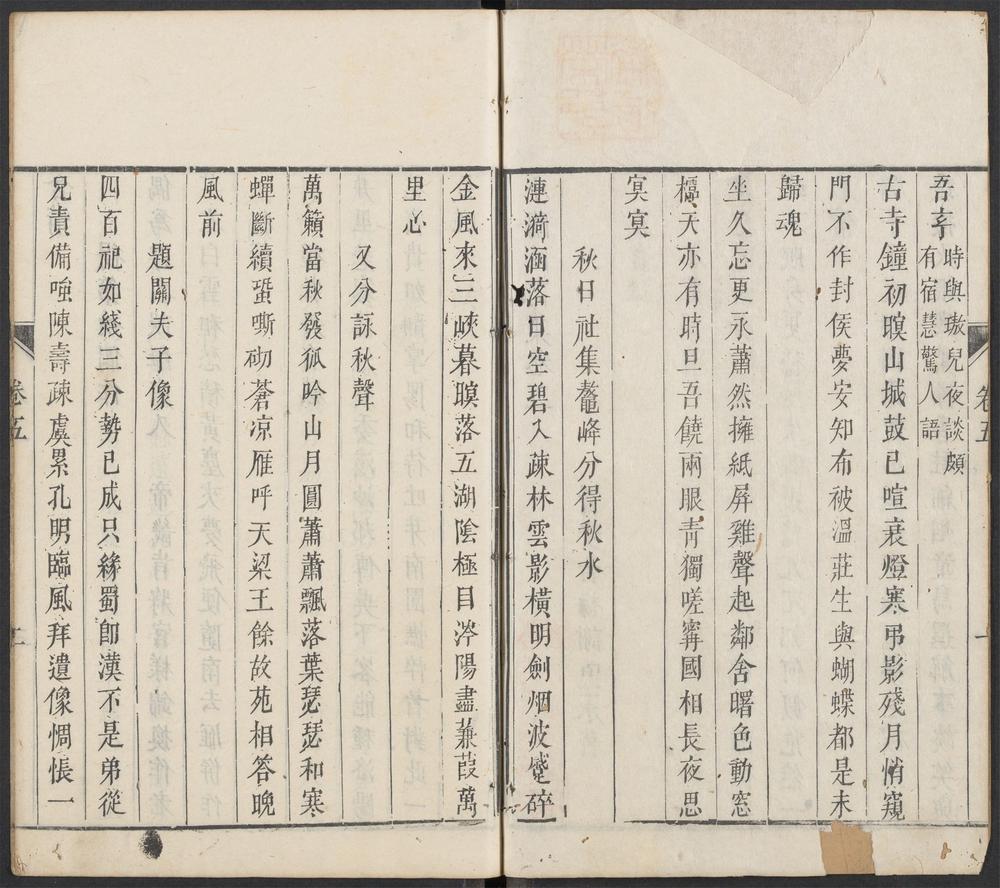 吾亭 時與璈兒夜談頗
有宿慧驚人語
古寺鐘初暝山城鼓已喧衰燈寒弔影殘月悄窺
門不作封侯夢安知布被溫莊生與蝴蝶都是未
歸魂
坐久忘更永蕭然擁紙屏雞聲起鄰舍曙色動窓
櫺天亦有時旦吾饒兩眼青獨嗟甯國相長夜思
冥冥
秋日社集鼇峰分得秋水
漣漪涵落日空碧入疎林雲影橫明劍烟波蹙碎
卷五
一
金風來三峽暮暝落五湖陰極目涔陽盡蒹葭萬
里心
又分詠秋聲
萬籟當秋發孤吟山月圓蕭蕭飄落葉瑟瑟和寒
蟬斷續蛩嘶砌蒼凉雁呼天梁王餘故苑相答晚
風前
題關夫子像
四百祀如綫三分勢已成只緣蜀卽漢不是弟從
兄責備嗤陳壽疎虞累孔明臨風拜遺像惆悵一
卷五
二